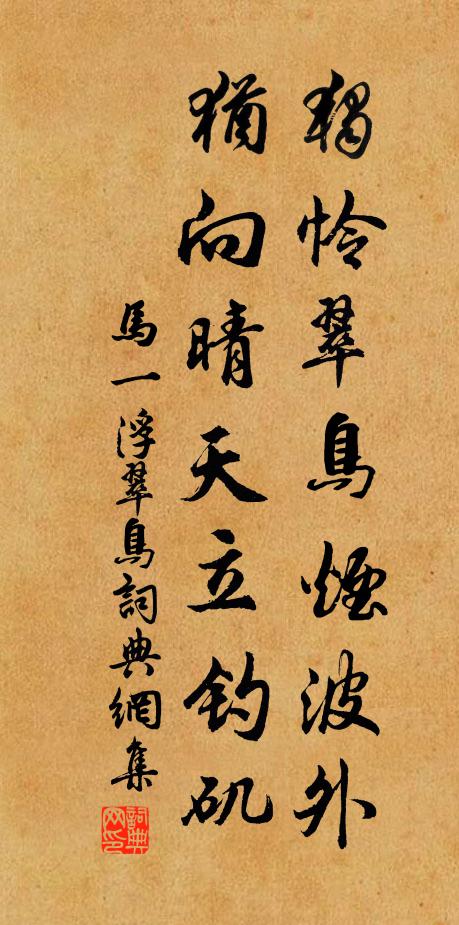 獨憐翠鳥煙波外
猶向晴天立釣矶
馬一浮翠鳥詞典網集
詞典网印